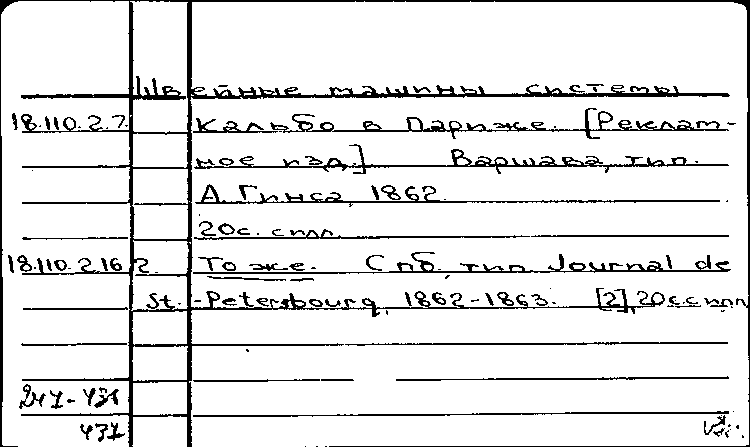 Швейные машины системы
18.110.2.7 Кальбо в Париже. [Реклам-
ное изд.] Варшава, тип.
А. Гинса, 1862.
20с. с илл.
18.110.2.16 2. То же. Спб, тип. Journal de
St.-Petersbourg, 1862-1863. [2], 20с с илл
247-431
431